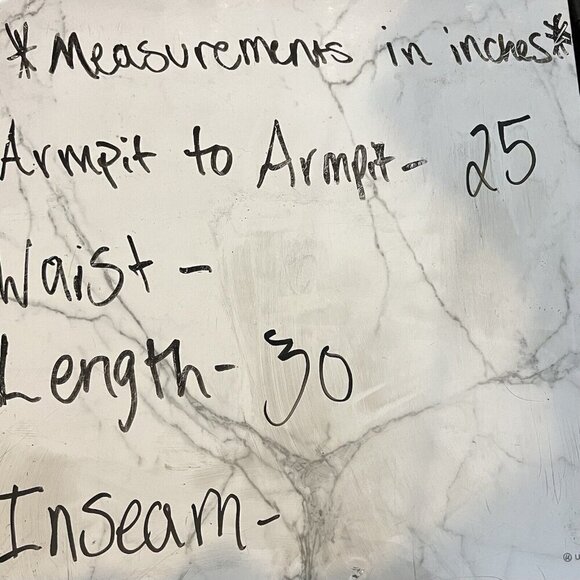 *Measurements in inches*
Armpit to Armpit- 25
Waist -
Length- 30
Inseam-